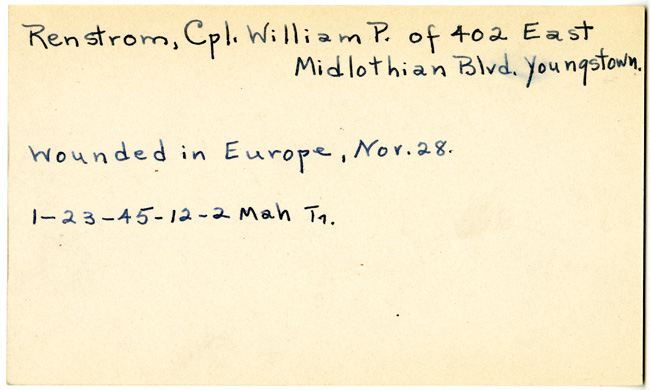 Renstrom, Cpl. William P. of 402 East
Midlothian Blvd. Youngstown.
Wounded in Europe, Nov. 28.
1-23-45-12-2 Mah Tr.